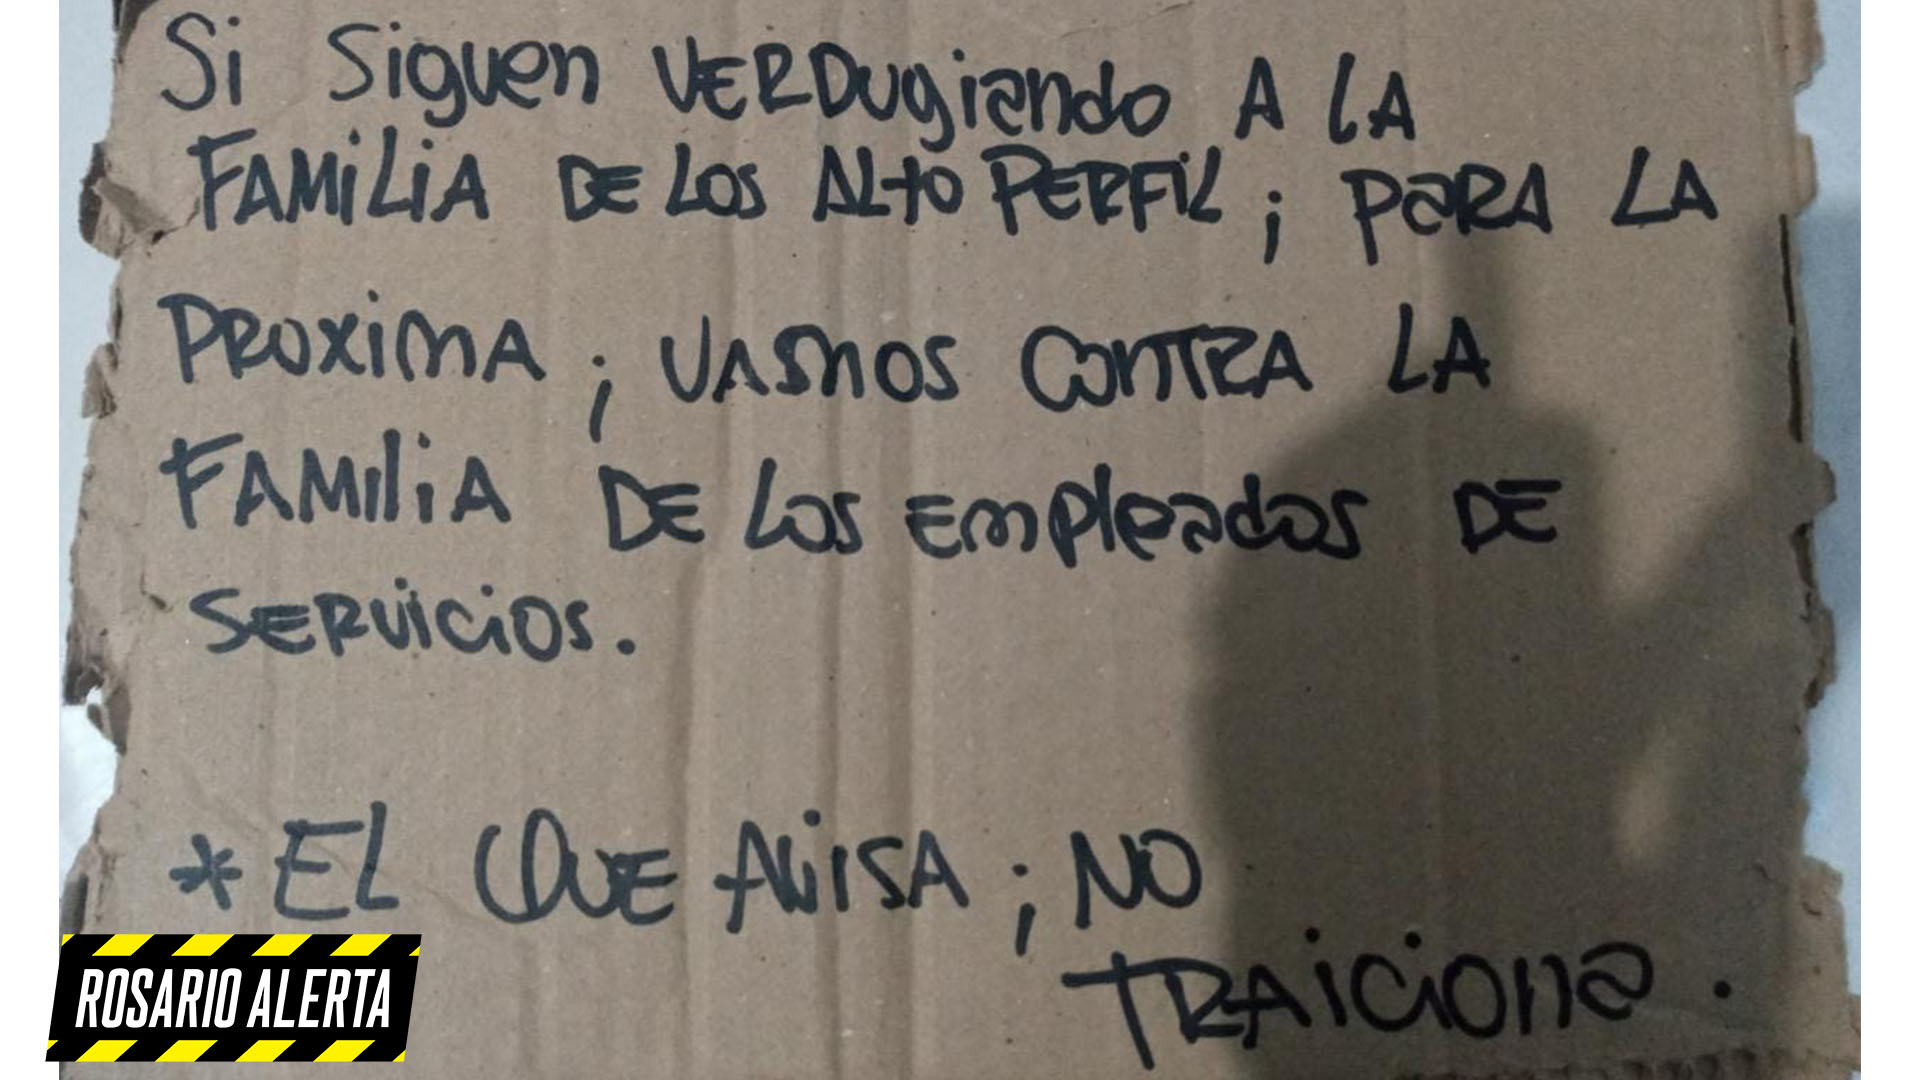 Si Siguen VERDugiando A LA
FAMiLiA DE LOS ALtO PERFiL ; PaRA LA
PROXiMA ; VAmos CONTRA LA
FAMiliA DE Los Empleados DE
SERViCiOS.
* EL QUE AViSA ; NO
TRAiCiona .
ROSARIO ALERTA